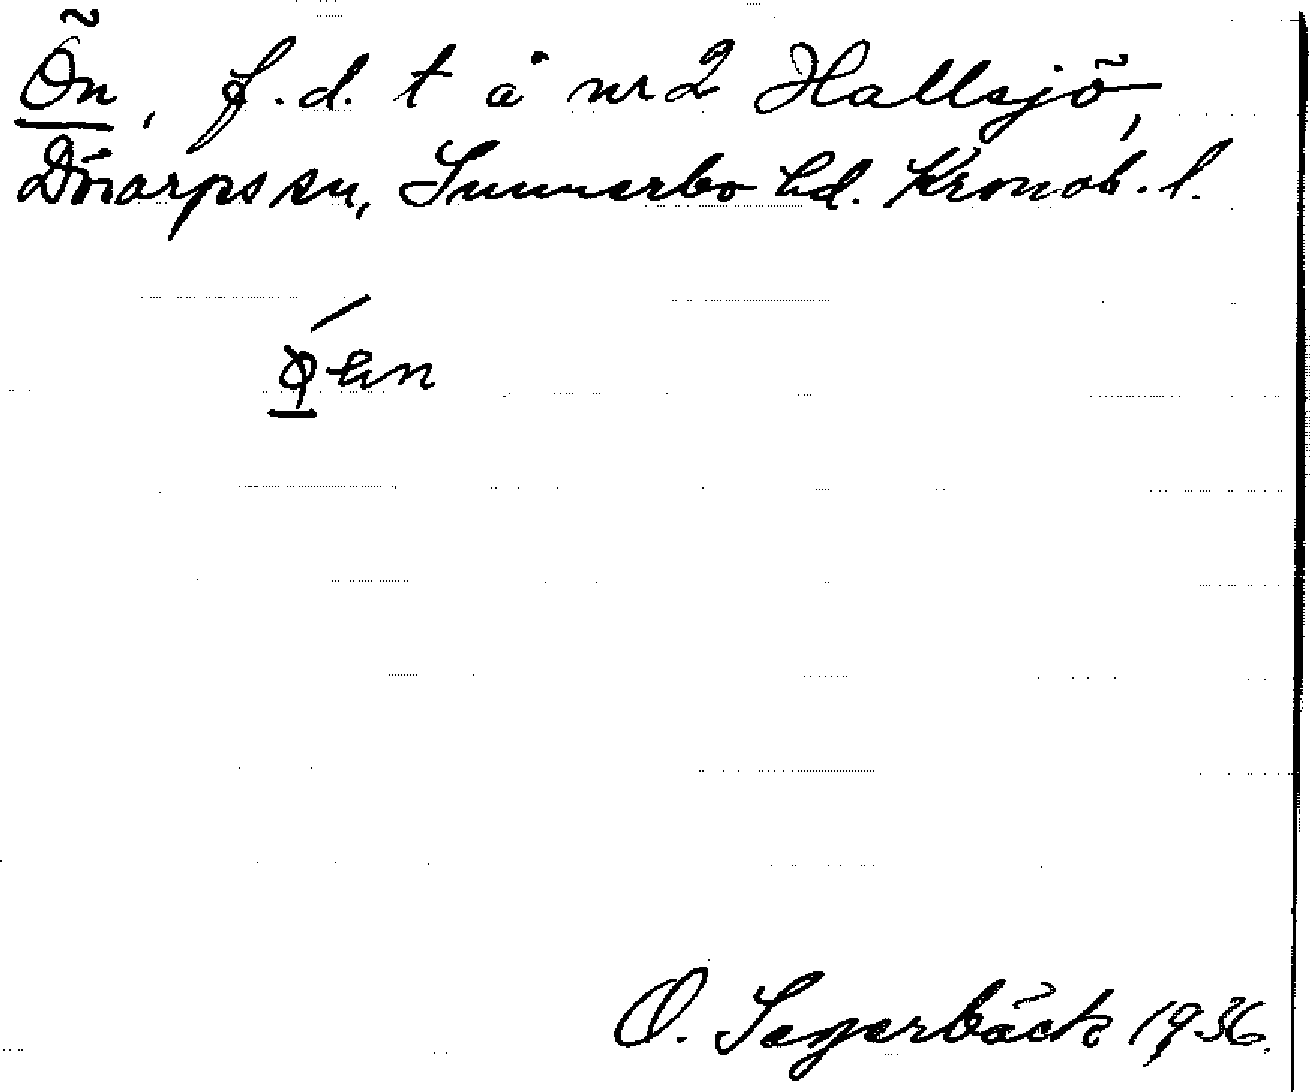 Ön, f.d. t å nr 2 Hallsjö,
Dörarps sn, Sunnerbo hd. Kronob. l.
O. Segerbäck 1936.